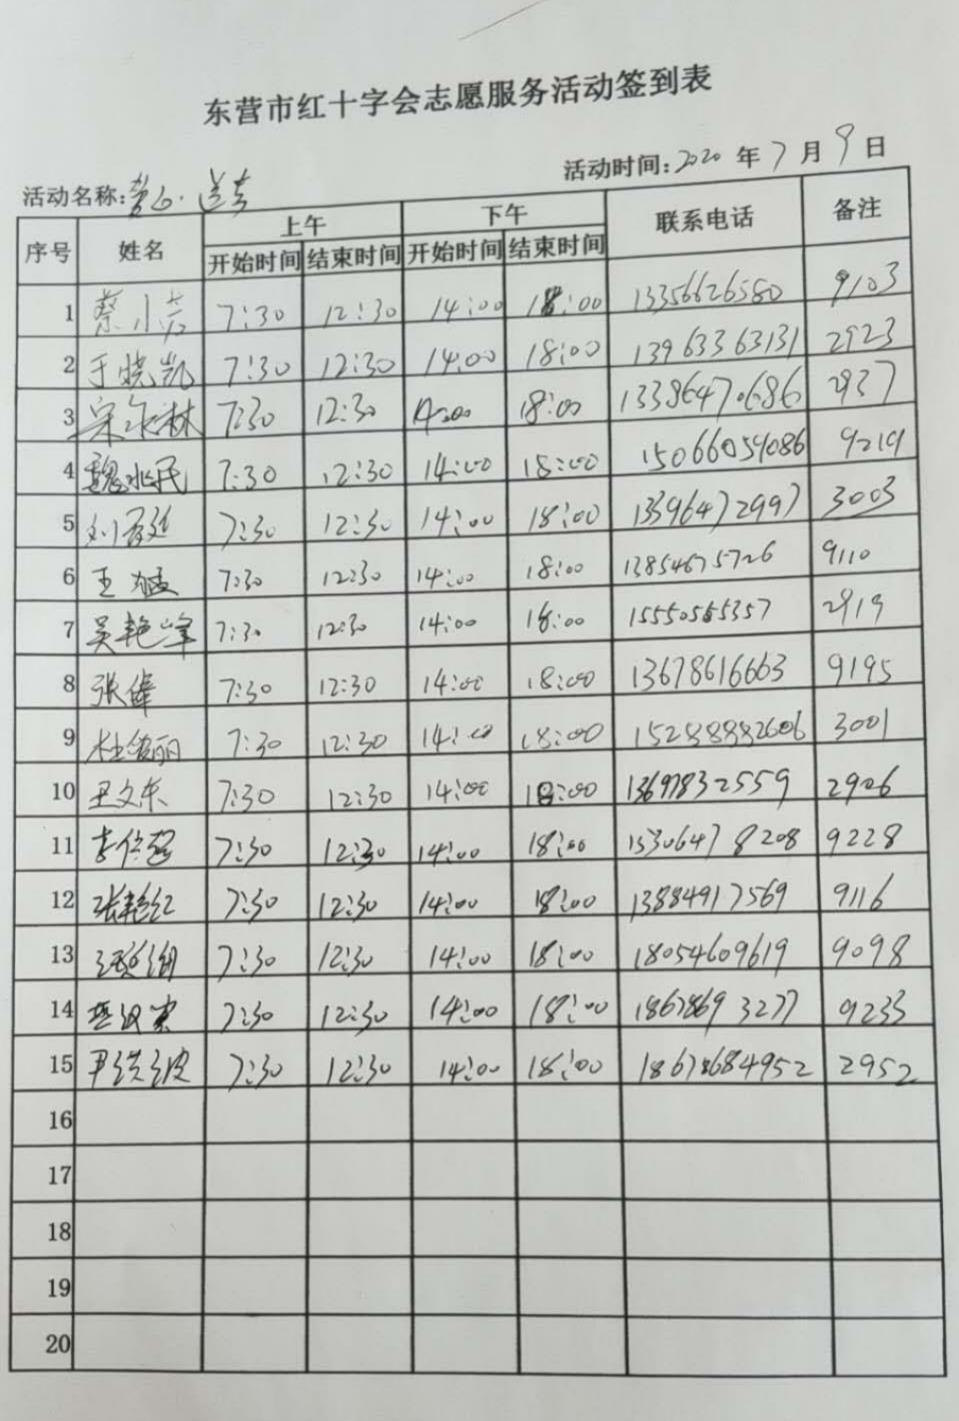 东营市红十字会志愿服务活动签到表
活动时间:2020 年 7 月 9 日
活动名称:
序号 姓名 上午 下午 联系电话 备注
开始时间 结束时间 开始时间 结束时间
1 蔡小芳 7:30 12:30 14:00 18:00 13356626580 9103
2 于晓凯 7:30 12:30 14:00 18:00 13963363131 2923
3 宋永林 7:30 12:30 14:00 18:00 13386470686 2937
4 魏水民 7:30 12:30 14:00 18:00 15066059086 9219
5 7:30 12:30 14:00 18:00 13396472997 3003
6 王 7:30 12:30 14:00 18:00 13854675726 9110
7 吴艳峰 7:30 12:30 14:00 18:00 15550555357 2919
8 张伟 7:30 12:30 14:00 18:00 13678616663 9195
9 杜俊丽 7:30 12:30 14:00 18:00 3001
10 王文东 7:30 12:30 14:00 18:00 13697832559 2906
11 李传超 7:30 12:30 14:00 18:00 15306478208 9228
12 张艳红 7:30 12:30 14:00 18:00 13884917569 9116
13 7:30 12:30 14:00 18:00 18054609619 9098
14 7:30 12:30 14:00 18:00 18678693277 9233
15 尹洪波 7:30 12:30 14:00 18:00 18678684952 2952
16
17
18
19
20